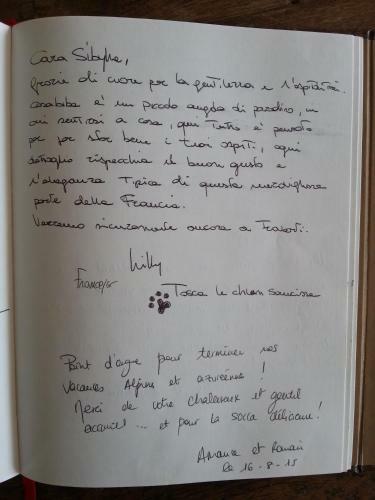 Cara Sibylle,
Grazie di cuore per la gentilezza e l'ospitalità.
Casabiba è un piccolo angolo di paradiso, in
cui sentirsi a casa, qui tutto è pensato
per far stare bene i tuoi ospiti, ogni
dettaglio rispecchia il buon gusto e
l'eleganza tipica di questa meravigliosa
parte della Francia.
Verremo sicuramente ancora a trovarti.
Willy
Francesca
Tosca le chien saucisse
Point d'orgue pour terminer nos
vacances Alpines et azuréennes !
Merci de votre chaleureux et gentil
accueil ... et pour la socca délicieuse !
et Romain
le 16-8-15